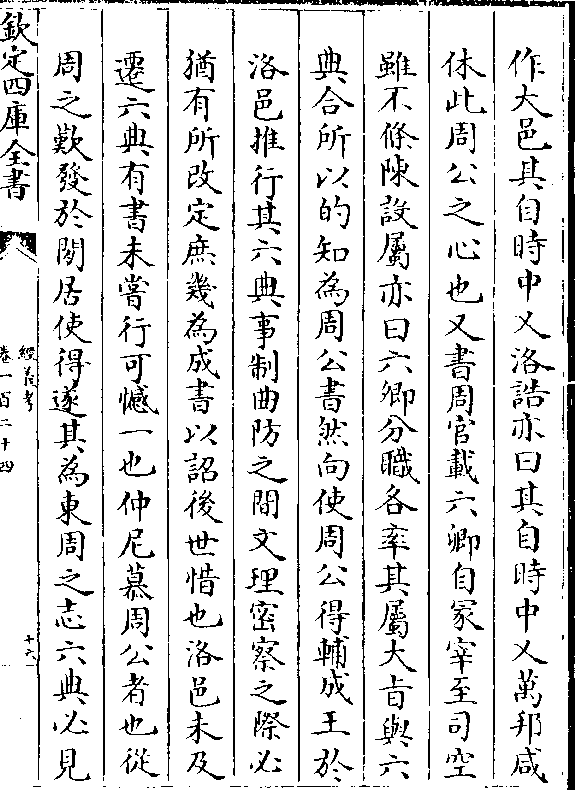 作大邑其自時中乂洛誥亦曰其自時中乂萬邦咸
休此周公之心也又書周官載六卿自冡宰至司空
雖不條陳設屬亦曰六卿分職各率其屬大㫖與六
典合所以的知為周公書然向使周公得輔成王於
洛邑推行其六典事制曲防之間文理密察之際必
猶有所改定庶幾為成書以詔後世惜也洛邑未及
遷六典有書未嘗行可憾一也仲尼慕周公者也從
周之歎發於閒居使得遂其為東周之志六典必見
欽定四庫全書
經義考
卷一百二十四
十六